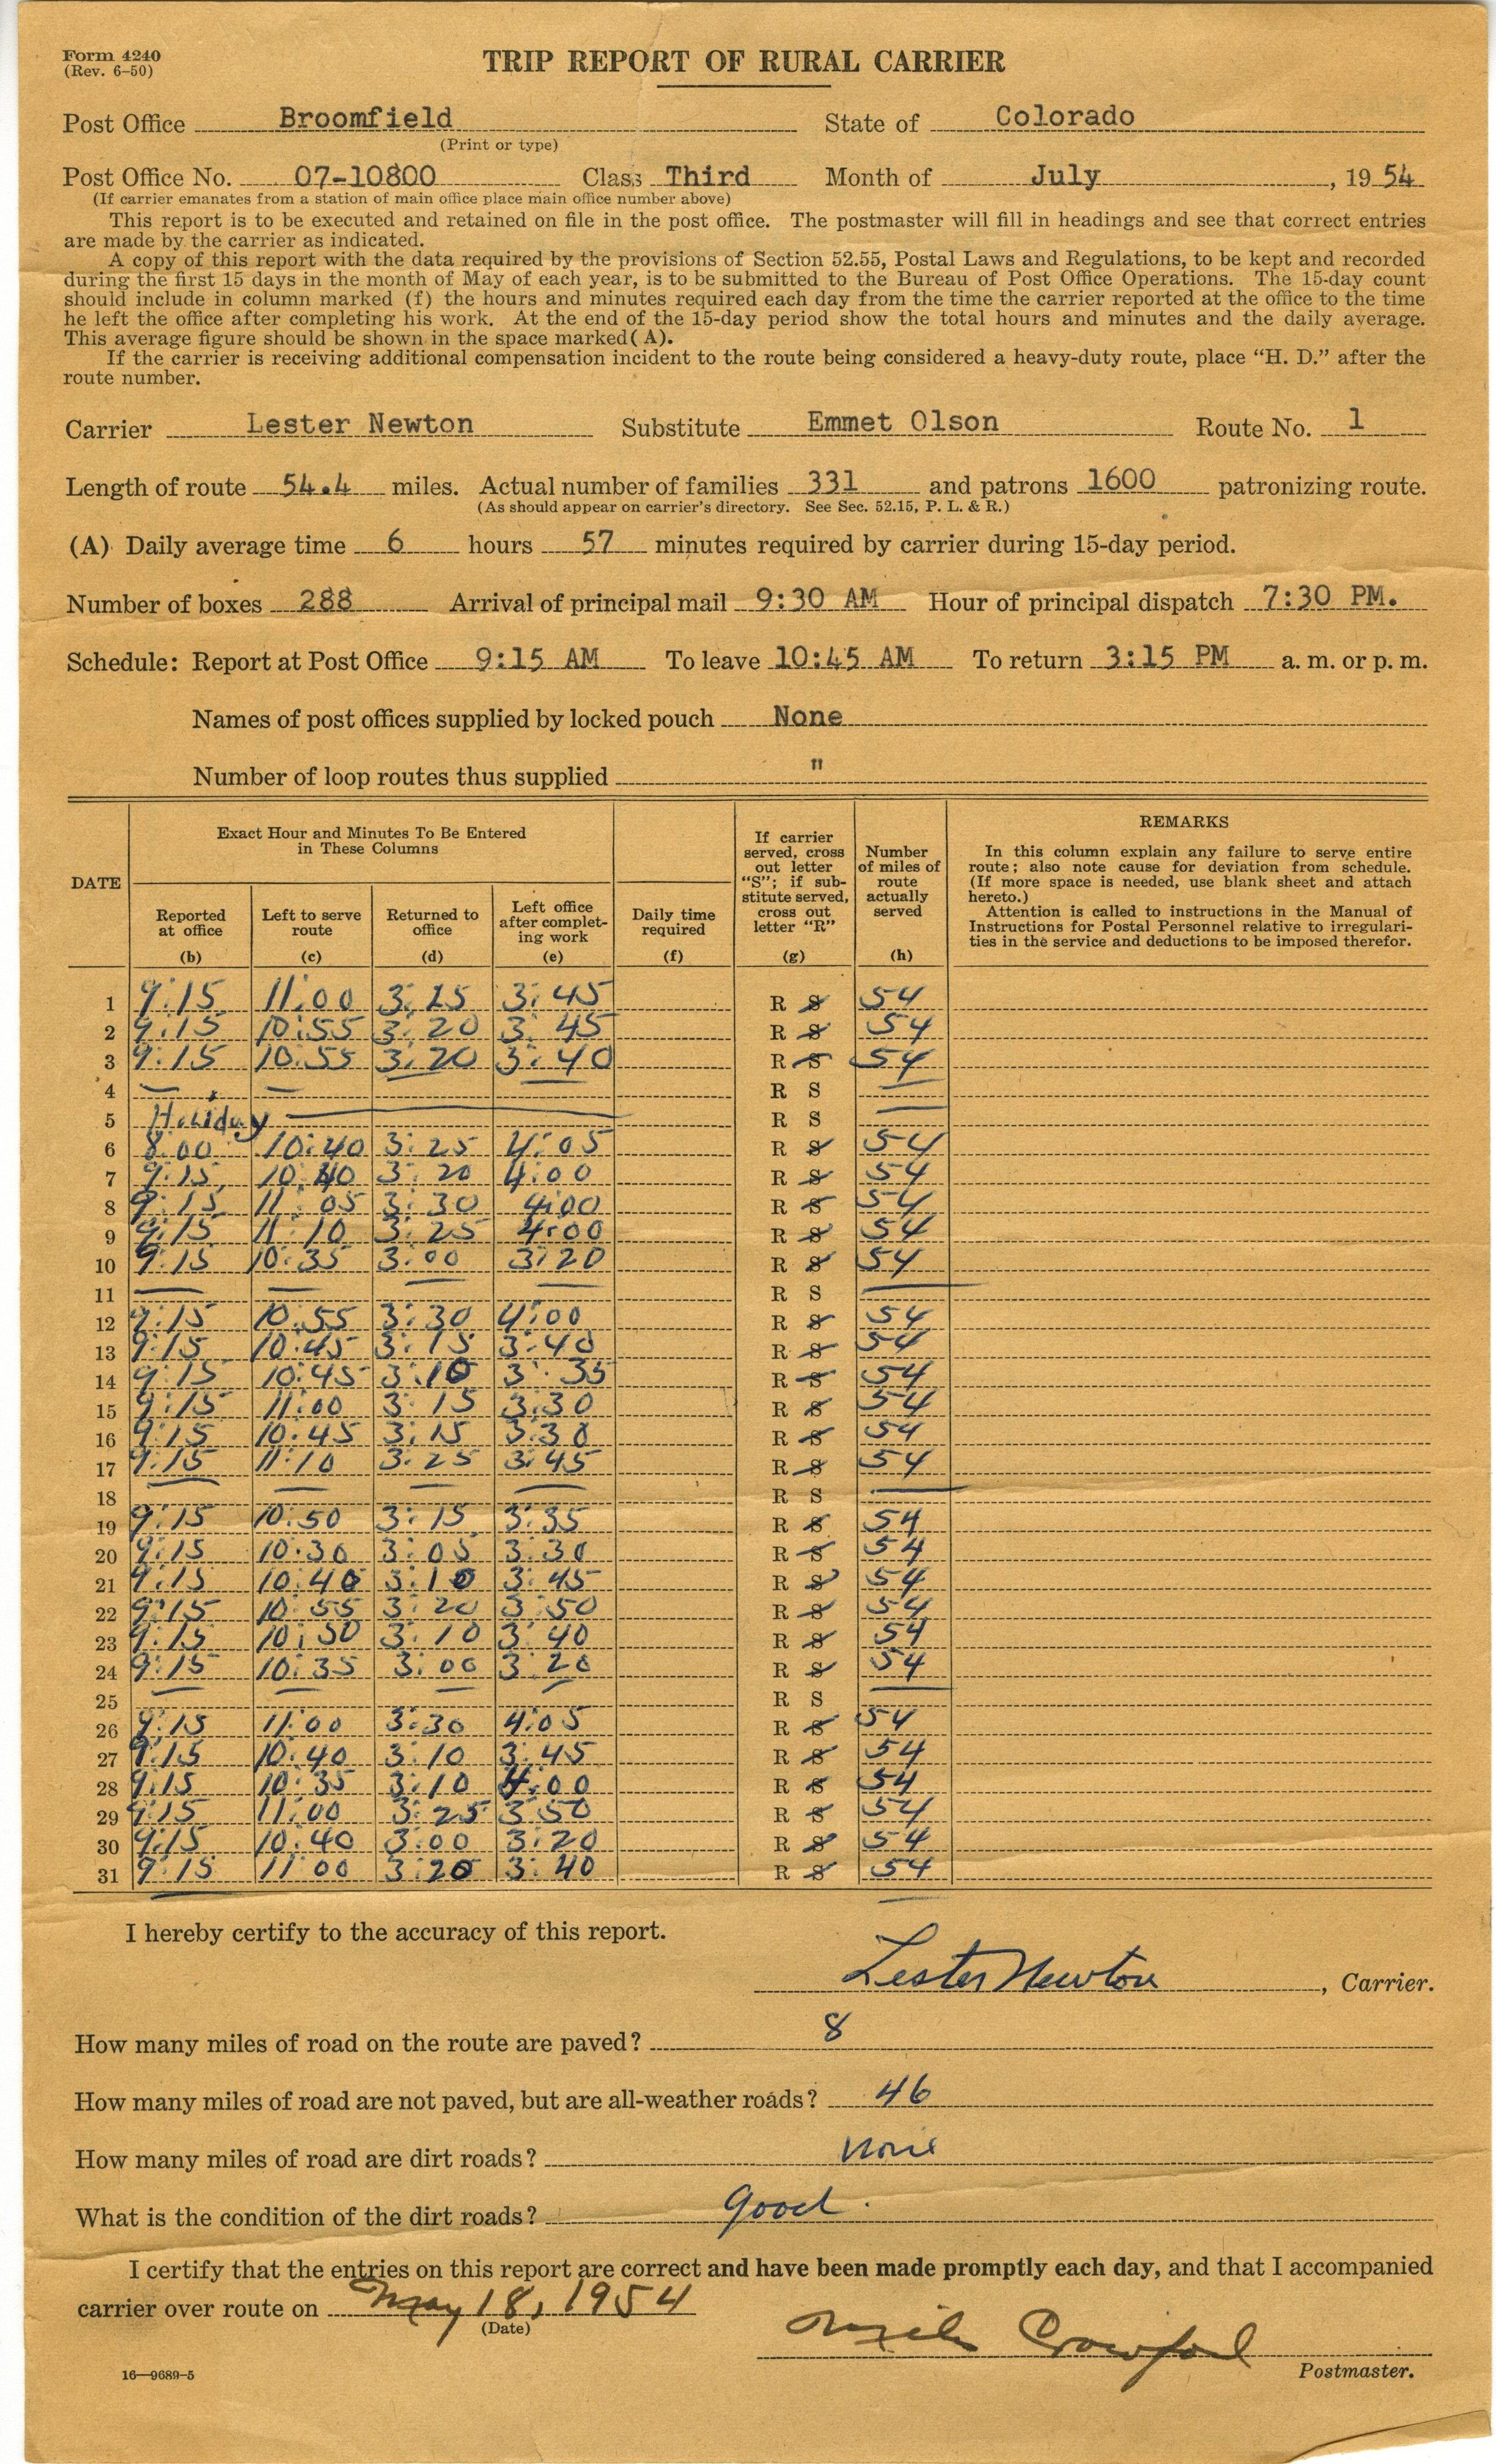 Form 4240
(Rev. 6-50)
TRIP REPORT OF RURAL CARRIER
Post Office Broomfield State of Colorado
(Print or type)
Post Office No. 07-10800 Class Third Month of July, 1954
(If carrier emanates from a station of main office place main office number above)
This report is to be executed and retained on file in the post office. The postmaster will fill in headings and see that correct entries
are made by the carrier as indicated.
A copy of this report with the data required by the provisions of Section 52.55, Postal Laws and Regulations, to be kept and recorded
during the first 15 days in the month of May of each year, is to be submitted to the Bureau of Post Office Operations. The 15-day count
should include in column marked (f) the hours and minutes required each day from the time the carrier reported at the office to the time
he left the office after completing his work. At the end of the 15-day period show the total hours and minutes and the daily average.
This average figure should be shown in the space marked (A).
If the carrier is receiving additional compensation incident to the route being considered a heavy-duty route, place "H. D." after the
route number.
Carrier Lester Newton Substitute Emmet Olson Route No. 1
Length of route 54.4 miles. Actual number of families 331 and patrons 1600 patronizing route.
(As should appear on carrier's directory. See Sec. 52.15, P. L. & R.)
(A) Daily average time 6 hours 57 minutes required by carrier during 15-day period.
Number of boxes 288 Arrival of principal mail 9:30 AM Hour of principal dispatch 7:30 PM.
Schedule: Report at Post Office 9:15 AM To leave 10:45 AM To return 3:15 PM a. m. or p. m.
Names of post offices supplied by locked pouch None
Number of loop routes thus supplied "
DATE
Exact Hour and Minutes To Be Entered
in These Columns
Reported
at office
(b)
Left to serve
route
(c)
Returned to
office
(d)
Left office
after complet-
ing work
(e)
Daily time
required
(f)
If carrier
served, cross
out letter
"S"; if sub-
stitute served,
cross out
letter "R"
(g)
Number
of miles of
route
actually
served
(h)
REMARKS
In this column explain any failure to serve entire
route; also note cause for deviation from schedule.
(If more space is needed, use blank sheet and attach
hereto.)
Attention is called to instructions in the Manual of
Instructions for Postal Personnel relative to irregulari-
ties in the service and deductions to be imposed therefor.
1 9:15 11:00 3:25 3:45 R S 54
2 9:15 10:55 3:20 3:45 R S 54
3 9:15 10:55 3:20 3:40 R S 54
4 — — — — R S —
5 Holiday R S —
6 8:00 10:40 3:25 4:05 R S 54
7 9:15 10:40 3:20 4:00 R S 54
8 9:15 11:05 3:30 4:00 R S 54
9 9:15 11:10 3:25 4:00 R S 54
10 9:15 10:35 3:00 3:20 R S 54
11 — — — — R S —
12 9:15 10:55 3:30 4:00 R S 54
13 9:15 10:45 3:15 3:40 R S 54
14 9:15 10:45 3:10 3:35 R S 54
15 9:15 11:00 3:15 3:30 R S 54
16 9:15 10:45 3:15 3:30 R S 54
17 9:15 11:10 3:25 3:45 R S 54
18 — — — — R S —
19 9:15 10:50 3:15 3:35 R S 54
20 9:15 10:30 3:05 3:30 R S 54
21 9:15 10:40 3:10 3:45 R S 54
22 9:15 10:55 3:20 3:50 R S 54
23 9:15 10:50 3:10 3:40 R S 54
24 9:15 10:35 3:00 3:20 R S 54
25 — — — — R S —
26 9:15 11:00 3:30 4:05 R S 54
27 9:15 10:40 3:10 3:45 R S 54
28 9:15 10:35 3:10 4:00 R S 54
29 9:15 11:00 3:25 3:50 R S 54
30 9:15 10:40 3:00 3:20 R S 54
31 9:15 11:00 3:20 3:40 R S 54
I hereby certify to the accuracy of this report.
Lester Newton, Carrier.
How many miles of road on the route are paved? 8
How many miles of road are not paved, but are all-weather roads? 46
How many miles of road are dirt roads? none
What is the condition of the dirt roads? good.
I certify that the entries on this report are correct and have been made promptly each day, and that I accompanied
carrier over route on May 18, 1954
(Date)
Crawford
Postmaster.
16—9689-5